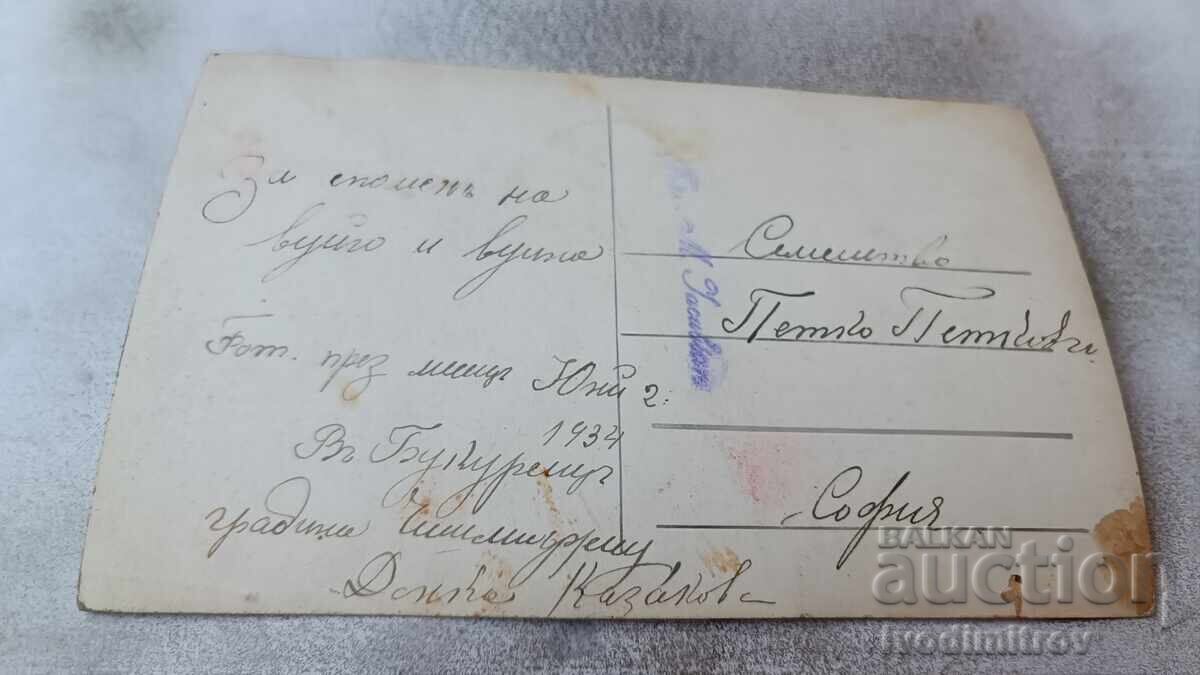 За споменъ на
вуйчо и вуйна
Фот. през месецъ Юни 2.
1934
Въ Букурещъ
градина Чишмиджиу
Донка Казакова
Семейство
Петко Петкови
София
BALKAN
auction
ivodimitrov